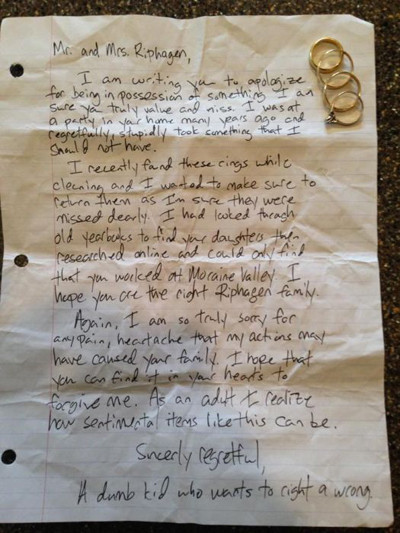 Mr. and Mrs. Riphagen,
I am writing you to apologize
for being in possession of something I am
sure you truly value and miss. I was at
a party in your home many years ago and
regretfully, stupidly took something that I
should not have.
I recently found these rings while
cleaning and I wanted to make sure to
return them as I'm sure they were
missed dearly. I had looked through
old yearbooks to find your daughters then
researched online and could only find
that you worked at Moraine Valley. I
hope you are the right Riphagen family.
Again, I am so truly sorry for
any pain, heartache that my actions may
have caused your family. I hope that
you can find it in your hearts to
forgive me. As an adult I realize
how sentimental items like this can be.
Sincerly regretful,
A dumb kid who wants to right a wrong